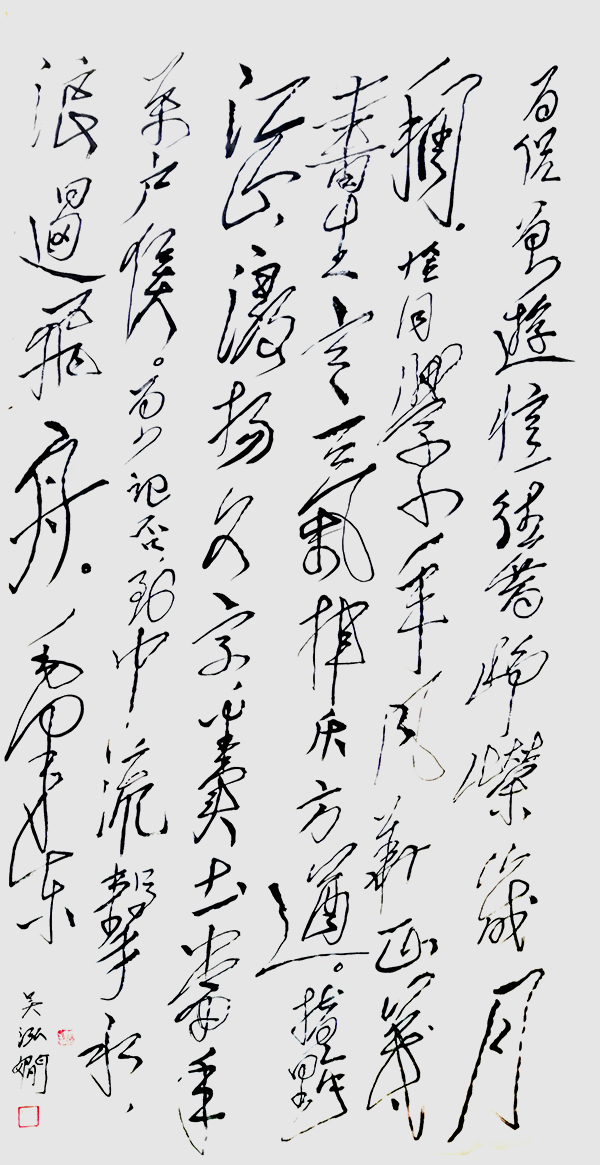 百侣曾遊憶往昔崢嶸歲月
稠。恰同學少年風華正茂
書生意氣揮斥方遒。指點
江山激扬文字糞土當年
萬户侯。曾记否,到中流擊水,
浪遏飛舟。毛澤东
吴泓嫻